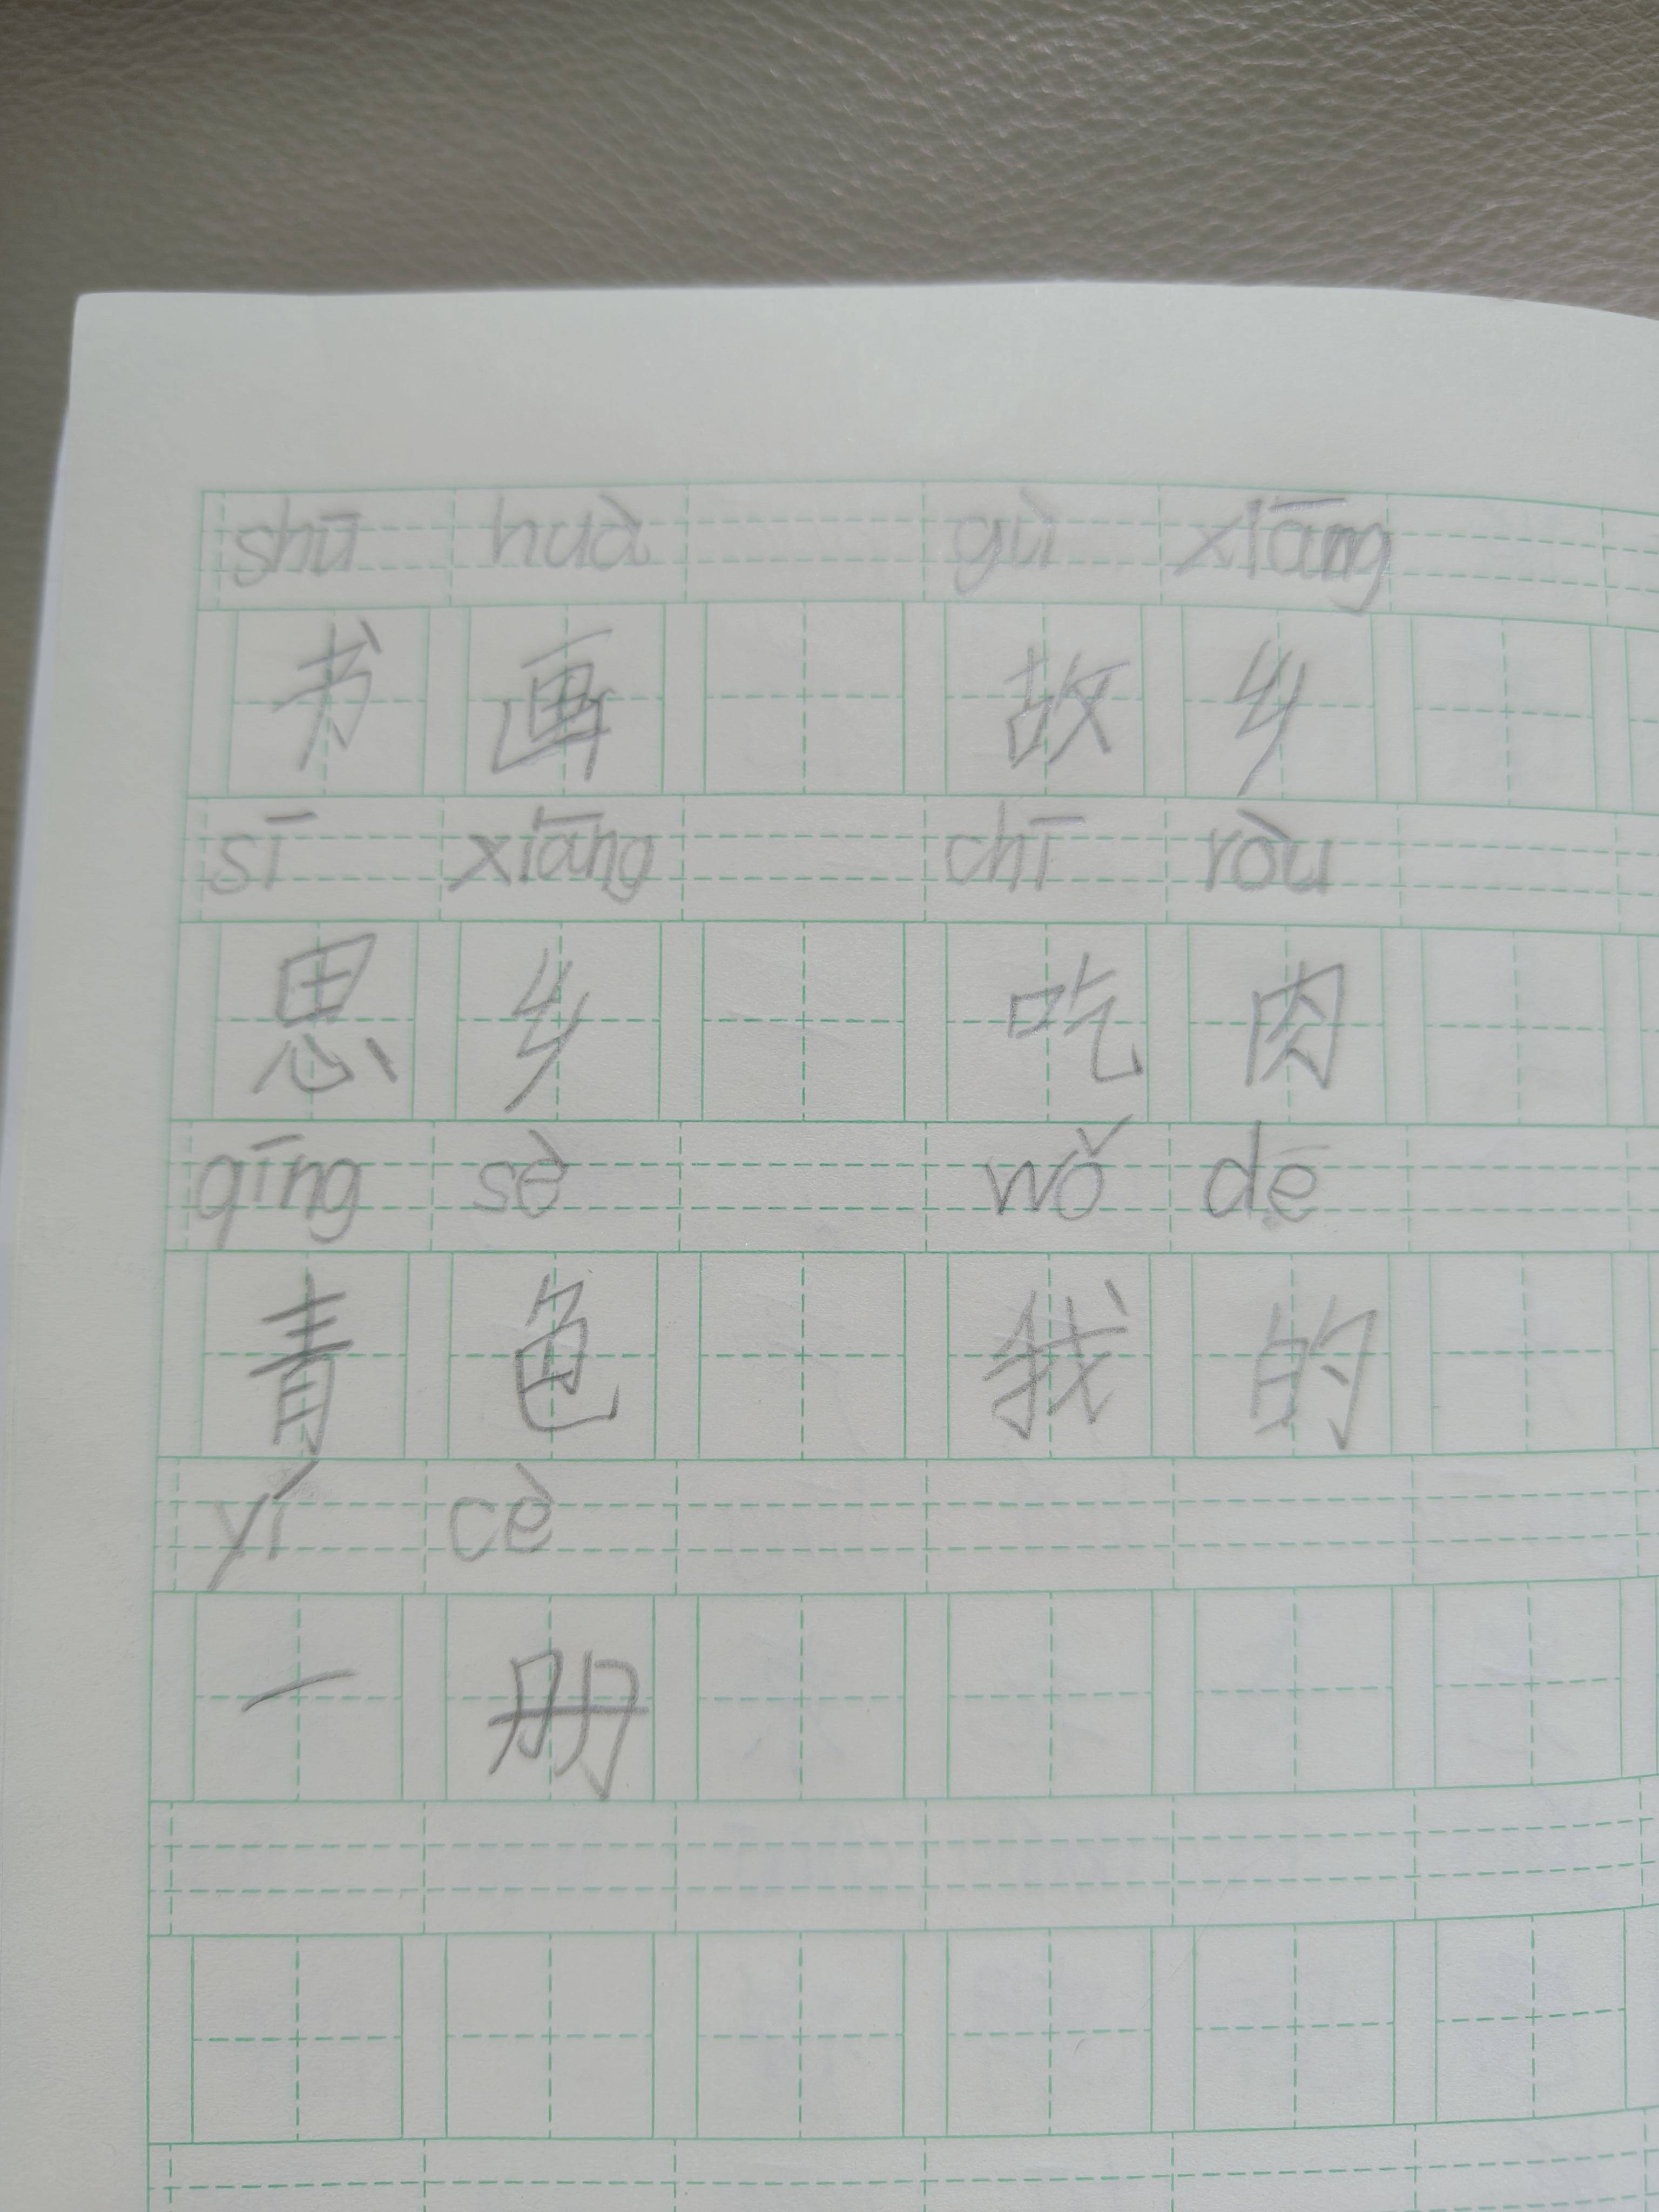 shū huà gù xiāng
书画 故乡
sī xiāng chī ròu
思乡 吃肉
qīng sè wǒ dē
青色 我的
yí cè
一册